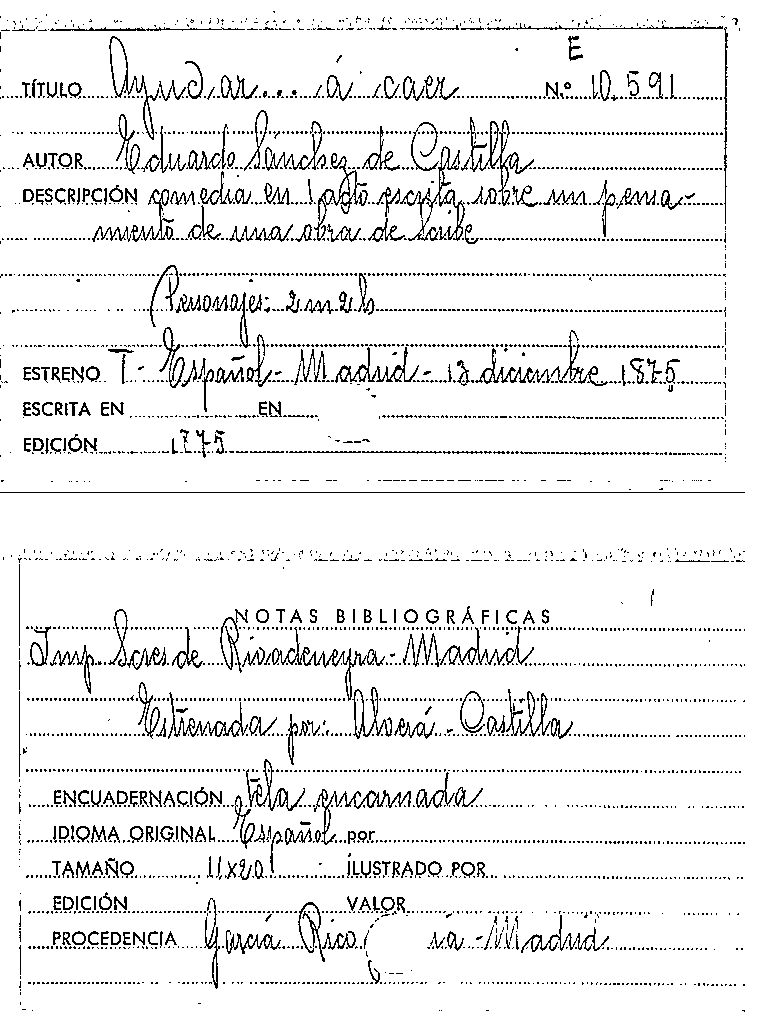 E
TÍTULO Ayudar... á caer N.º 10.591
AUTOR Eduardo Sánchez de Castilla
DESCRIPCIÓN comedia en 1 acto escrita sobre un pensa-
miento de una obra de Scribe
Personajes: 2 m 2 h
ESTRENO T- Español - Madrid - 13 diciembre 1875
ESCRITA EN EN
EDICIÓN 1775
NOTAS BIBLIOGRÁFICAS
Imp. Scres de Rivadeneyra - Madrid
Estrenada por: Alverá - Castilla
ENCUADERNACIÓN tela encarnada
IDIOMA ORIGINAL Español por
TAMAÑO 11x20 ILUSTRADO POR
EDICIÓN VALOR
PROCEDENCIA García Rico - Madrid